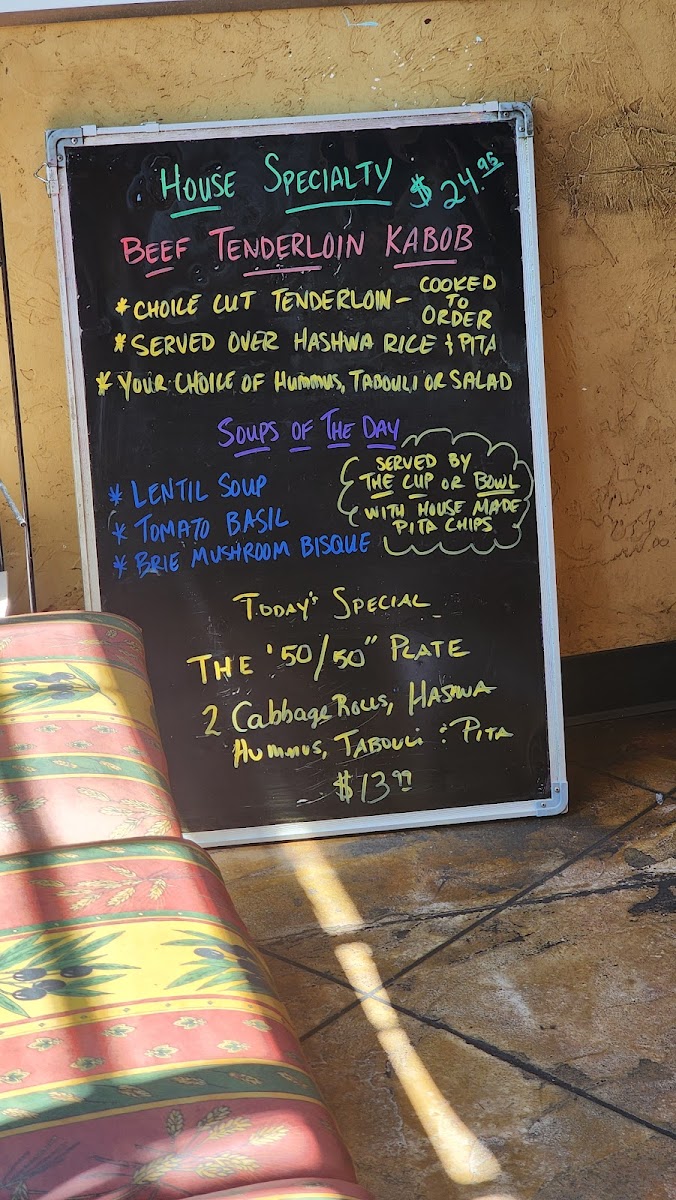 HOUSE SPECIALTY $24.95
BEEF TENDERLOIN KABOB
* CHOICE CUT TENDERLOIN - COOKED TO ORDER
* SERVED OVER HASHWA RICE & PITA
* YOUR CHOICE OF HUMMUS, TABOULI OR SALAD
SOUPS OF THE DAY
* LENTIL SOUP
* TOMATO BASIL
* BRIE MUSHROOM BISQUE
SERVED BY
THE CUP OR BOWL
WITH HOUSE MADE
PITA CHIPS
TODAY'S SPECIAL
THE '50/50" PLATE
2 Cabbage Rolls, HASHWA
HUMMUS, TABOULI & PITA
$13.99